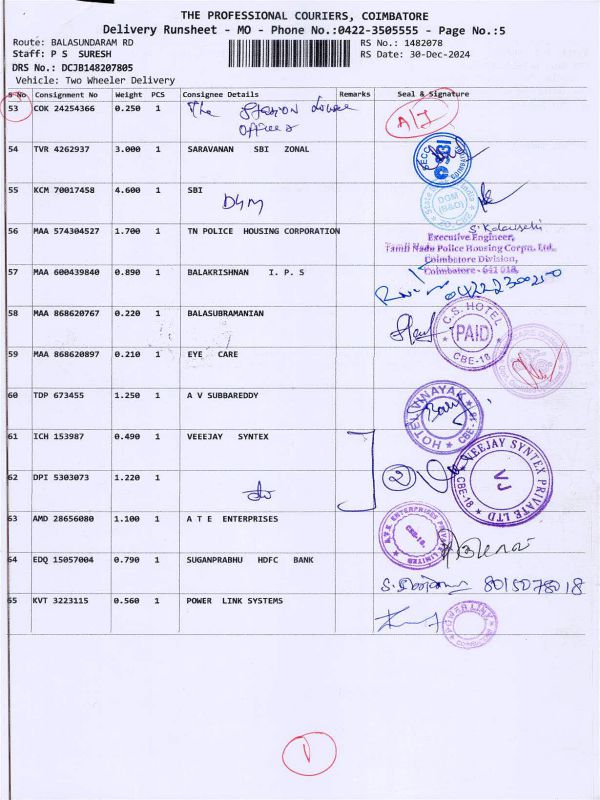 THE PROFESSIONAL COURIERS, COIMBATORE
Delivery Runsheet - MO - Phone No.:0422-3505555 - Page No.:5
Route: BALASUNDARAM RD RS No.: 1482078
Staff: P S SURESH RS Date: 30-Dec-2024
DRS No.: DCJB148207805
Vehicle: Two Wheeler Delivery
S No Consignment No Weight PCS Consignee Details Remarks Seal & Signature
53 COK 24254366 0.250 1 The
Officer A/J
54 TVR 4262937 3.000 1 SARAVANAN SBI ZONAL
SBI
55 KCM 70017458 4.600 1 SBI
DGM
DGM
(B&O)
56 MAA 574304527 1.700 1 TN POLICE HOUSING CORPORATION
Executive Engineer,
Tamil Nadu Police Housing Corpn. Ltd.,
Coimbatore Division,
Coimbatore - 641 018.
57 MAA 600439840 0.890 1 BALAKRISHNAN I. P. S
04222300250
58 MAA 868620767 0.220 1 BALASUBRAMANIAN
C.S. HOTEL
PAID
CBE-18
59 MAA 868620897 0.210 1 EYE CARE
60 TDP 673455 1.250 1 A V SUBBAREDDY
HOTEL VINAYAK
61 ICH 153987 0.490 1 VEEEJAY SYNTEX
2
VEEJAY SYNTEX PRIVATE LTD
VJ
CBE-18
62 DPI 5303073 1.220 1
do
63 AMD 28656080 1.100 1 A T E ENTERPRISES
A.T.E. ENTERPRISES PRIVATE LIMITED
CBE-18.
64 EDQ 15057004 0.790 1 SUGANPRABHU HDFC BANK
8015078018
65 KVT 3223115 0.560 1 POWER LINK SYSTEMS
POWER LINK